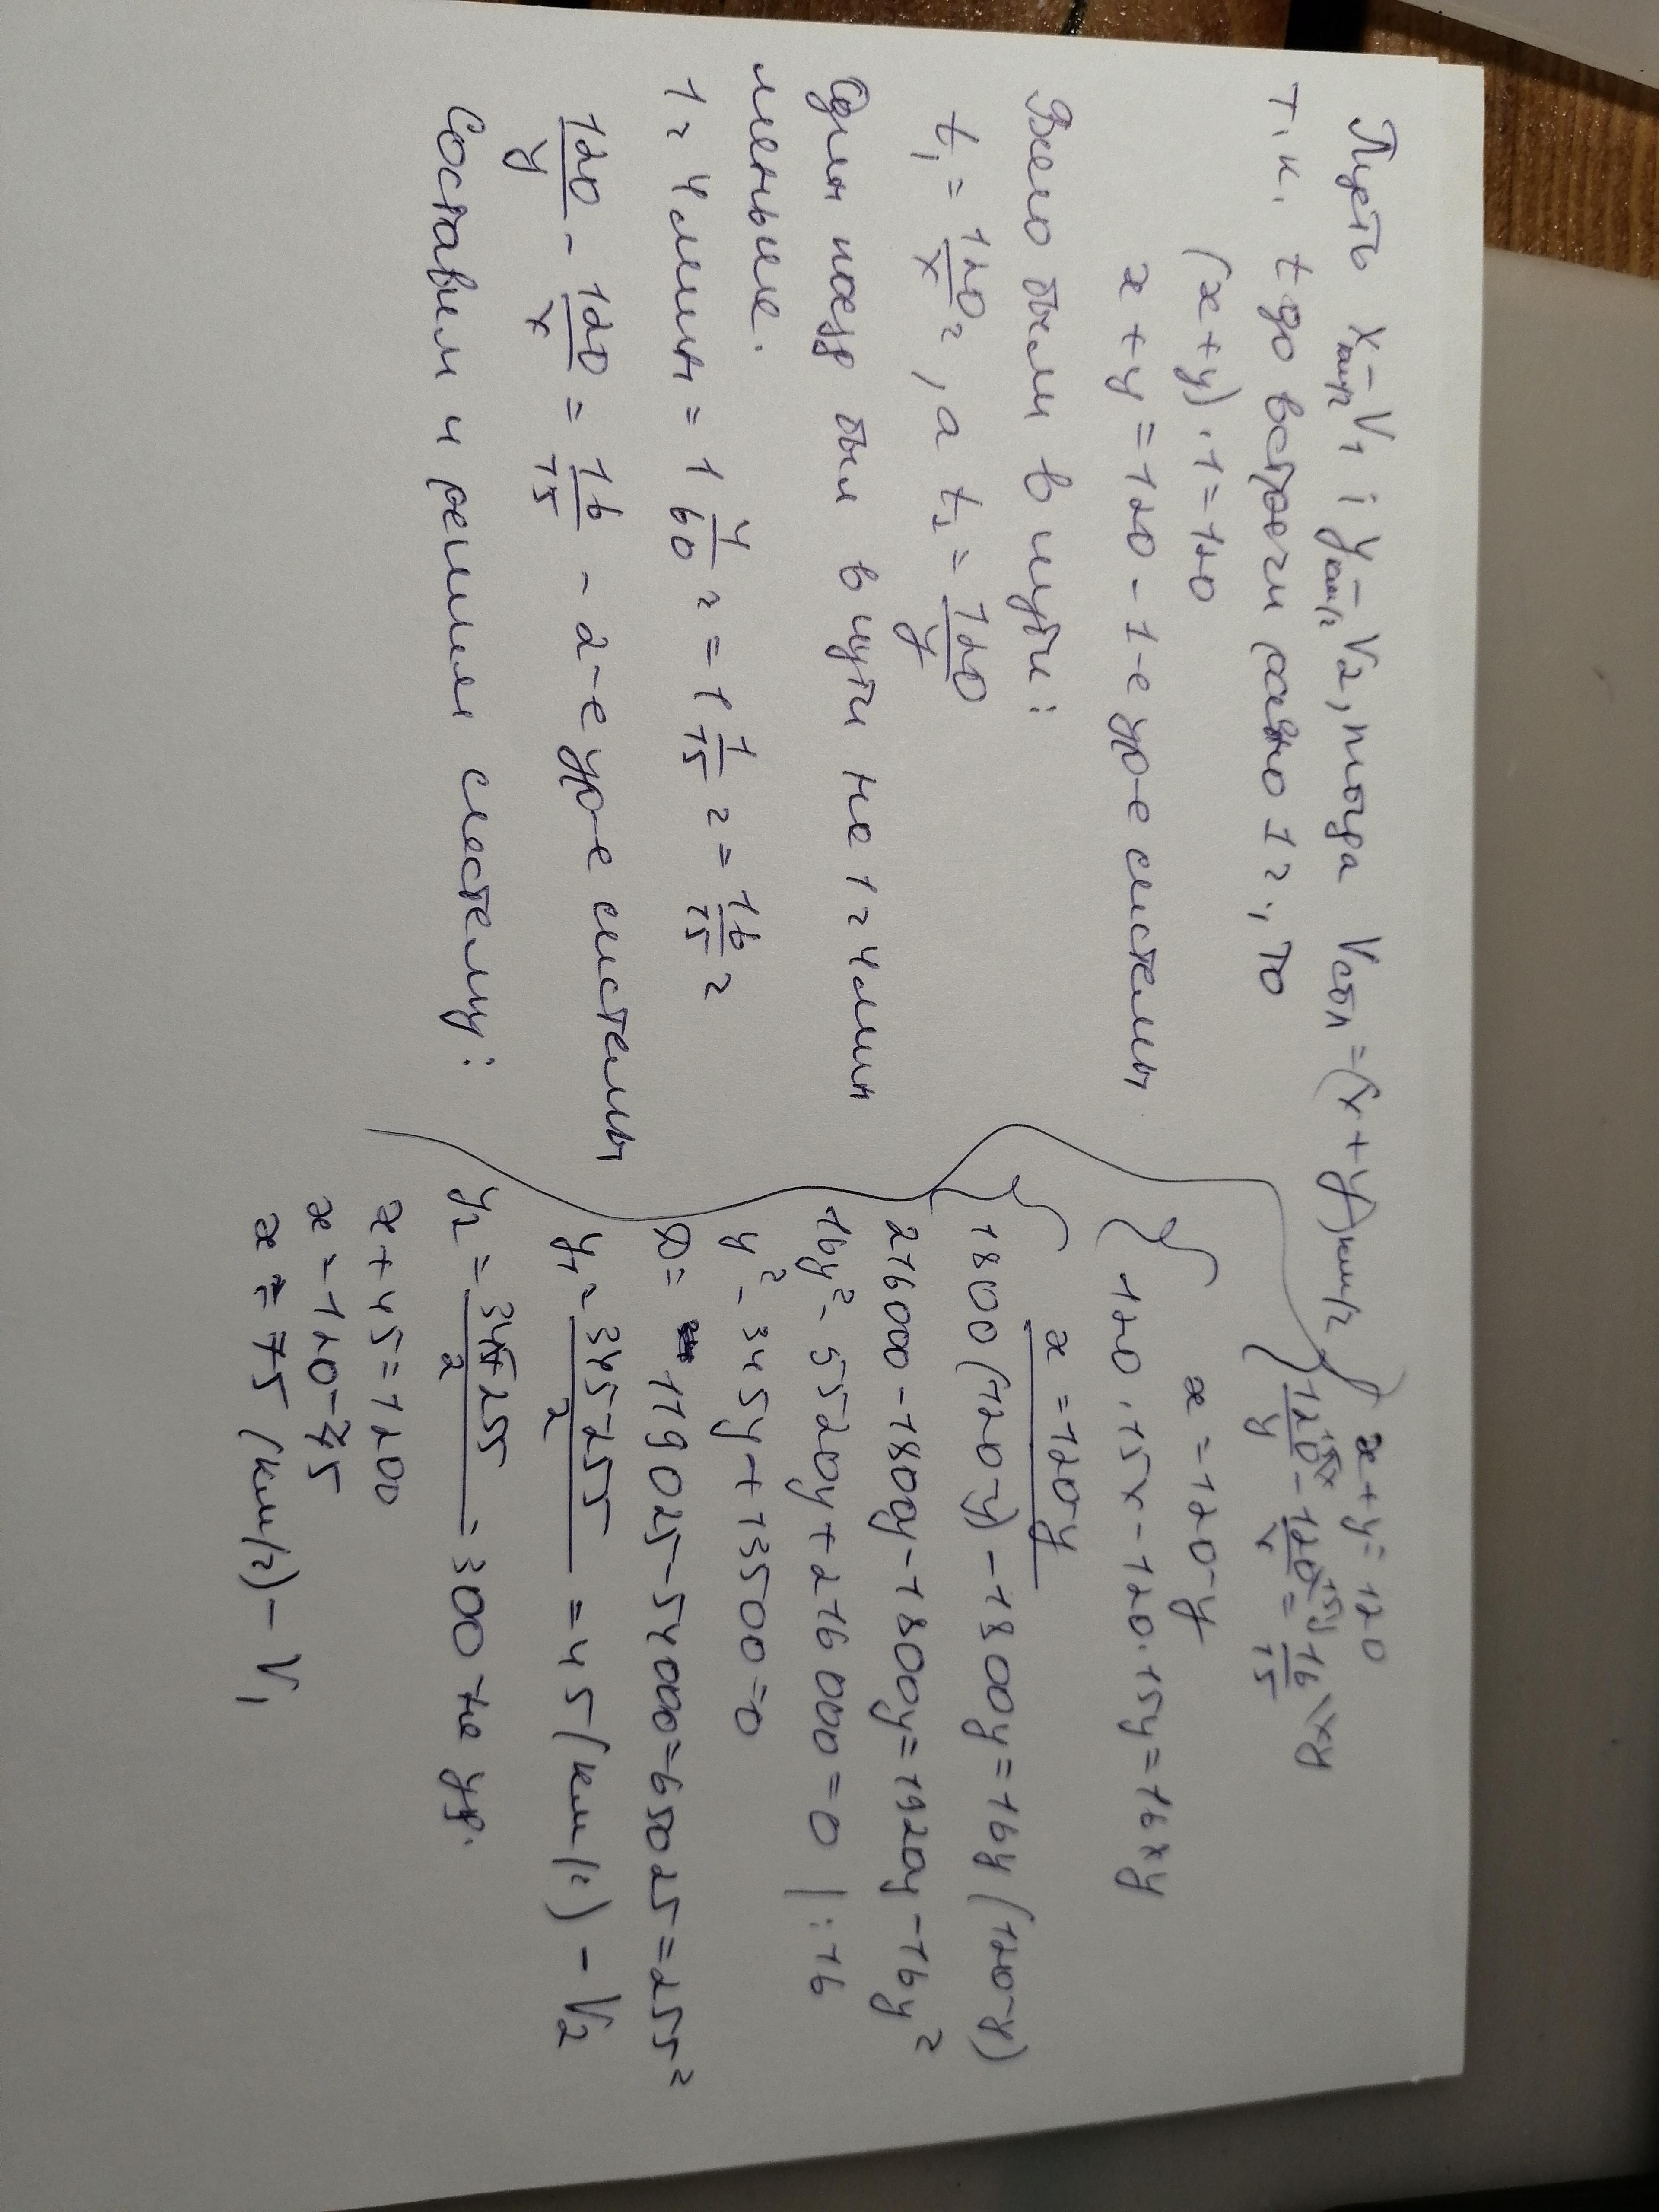 Пусть x км/г - V₁ ; y км/г - V₂, тогда Vсбл = (x+y) км/г
т.к. t до встречи равно 1 г., то
(x+y)·1=120
x+y=120 - 1-е ур-е системы
Всего были в пути:
t₁ = 120/x г, а t₂ = 120/y
Один поезд был в пути на 1 г 4 мин
меньше.
1 г 4 мин = 1 4/60 г = 1 1/15 г = 16/15 г
120/y - 120/x = 16/15 - 2-е ур-е системы
Составим и решим систему:
{ x+y=120
{ 120/y - 120/x = 16/15 \xy
x=120-y
{ 120·15x-120·15y=16xy
{ x=120-y
1800(120-y)-1800y=16y(120-y)
216000-1800y-1800y=1920y-16y²
16y²-5520y+216000=0 |:16
y²-345y+13500=0
D=119025-54000=65025=255²
y₁=(345-255)/2=45(км/г) - V₂
y₂=(345+255)/2=300 - не уд.
x+45=1200
x=120-75
x=75 (км/г) - V₁